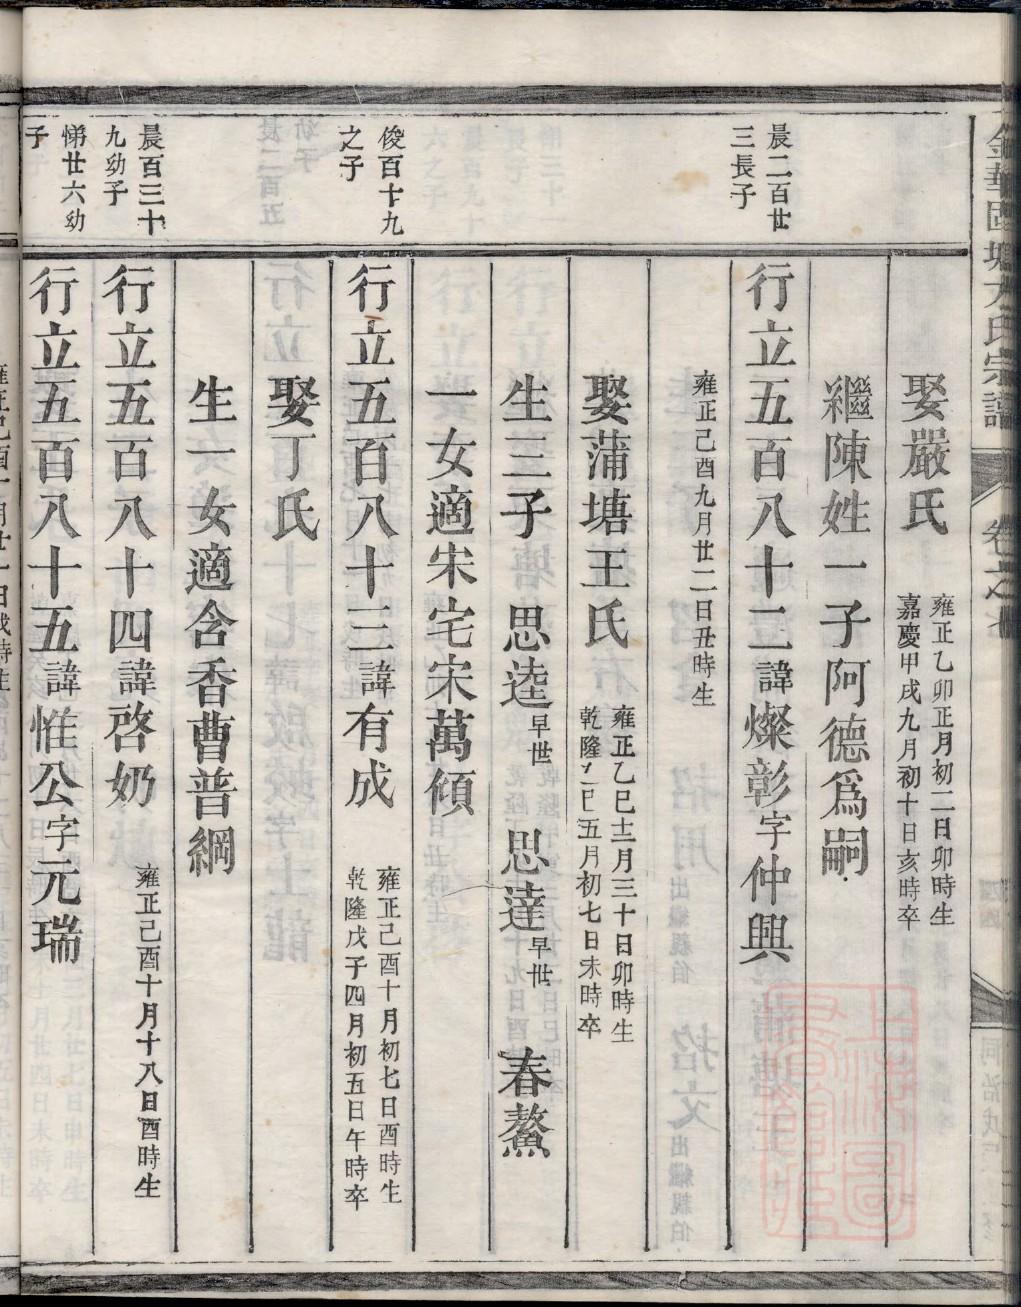 金華國塘方氏宗譜
卷之七
娶嚴氏
雍正乙卯正月初二日卯時生
嘉慶甲戌九月初十日亥時卒
繼陳姓一子阿德爲嗣
晨二百廿
三長子
行立五百八十二諱燦彰字仲興
雍正己酉九月廿二日丑時生
娶蒲塘王氏
雍正乙巳十二月三十日卯時生
五月初七日未時卒
生三子 思逵早世 思達早世 春鰲
一女適宋宅宋萬傾
俊百十九
之子
行立五百八十三諱有成
雍正己酉十月初七日酉時生
乾隆戊子四月初五日午時卒
娶丁氏
生一女適含香曹普綱
晨百三十
九幼子
行立五百八十四諱啓奶
雍正己酉十月十八日酉時生
悌廿六幼
子
行立五百八十五諱惟公字元瑞